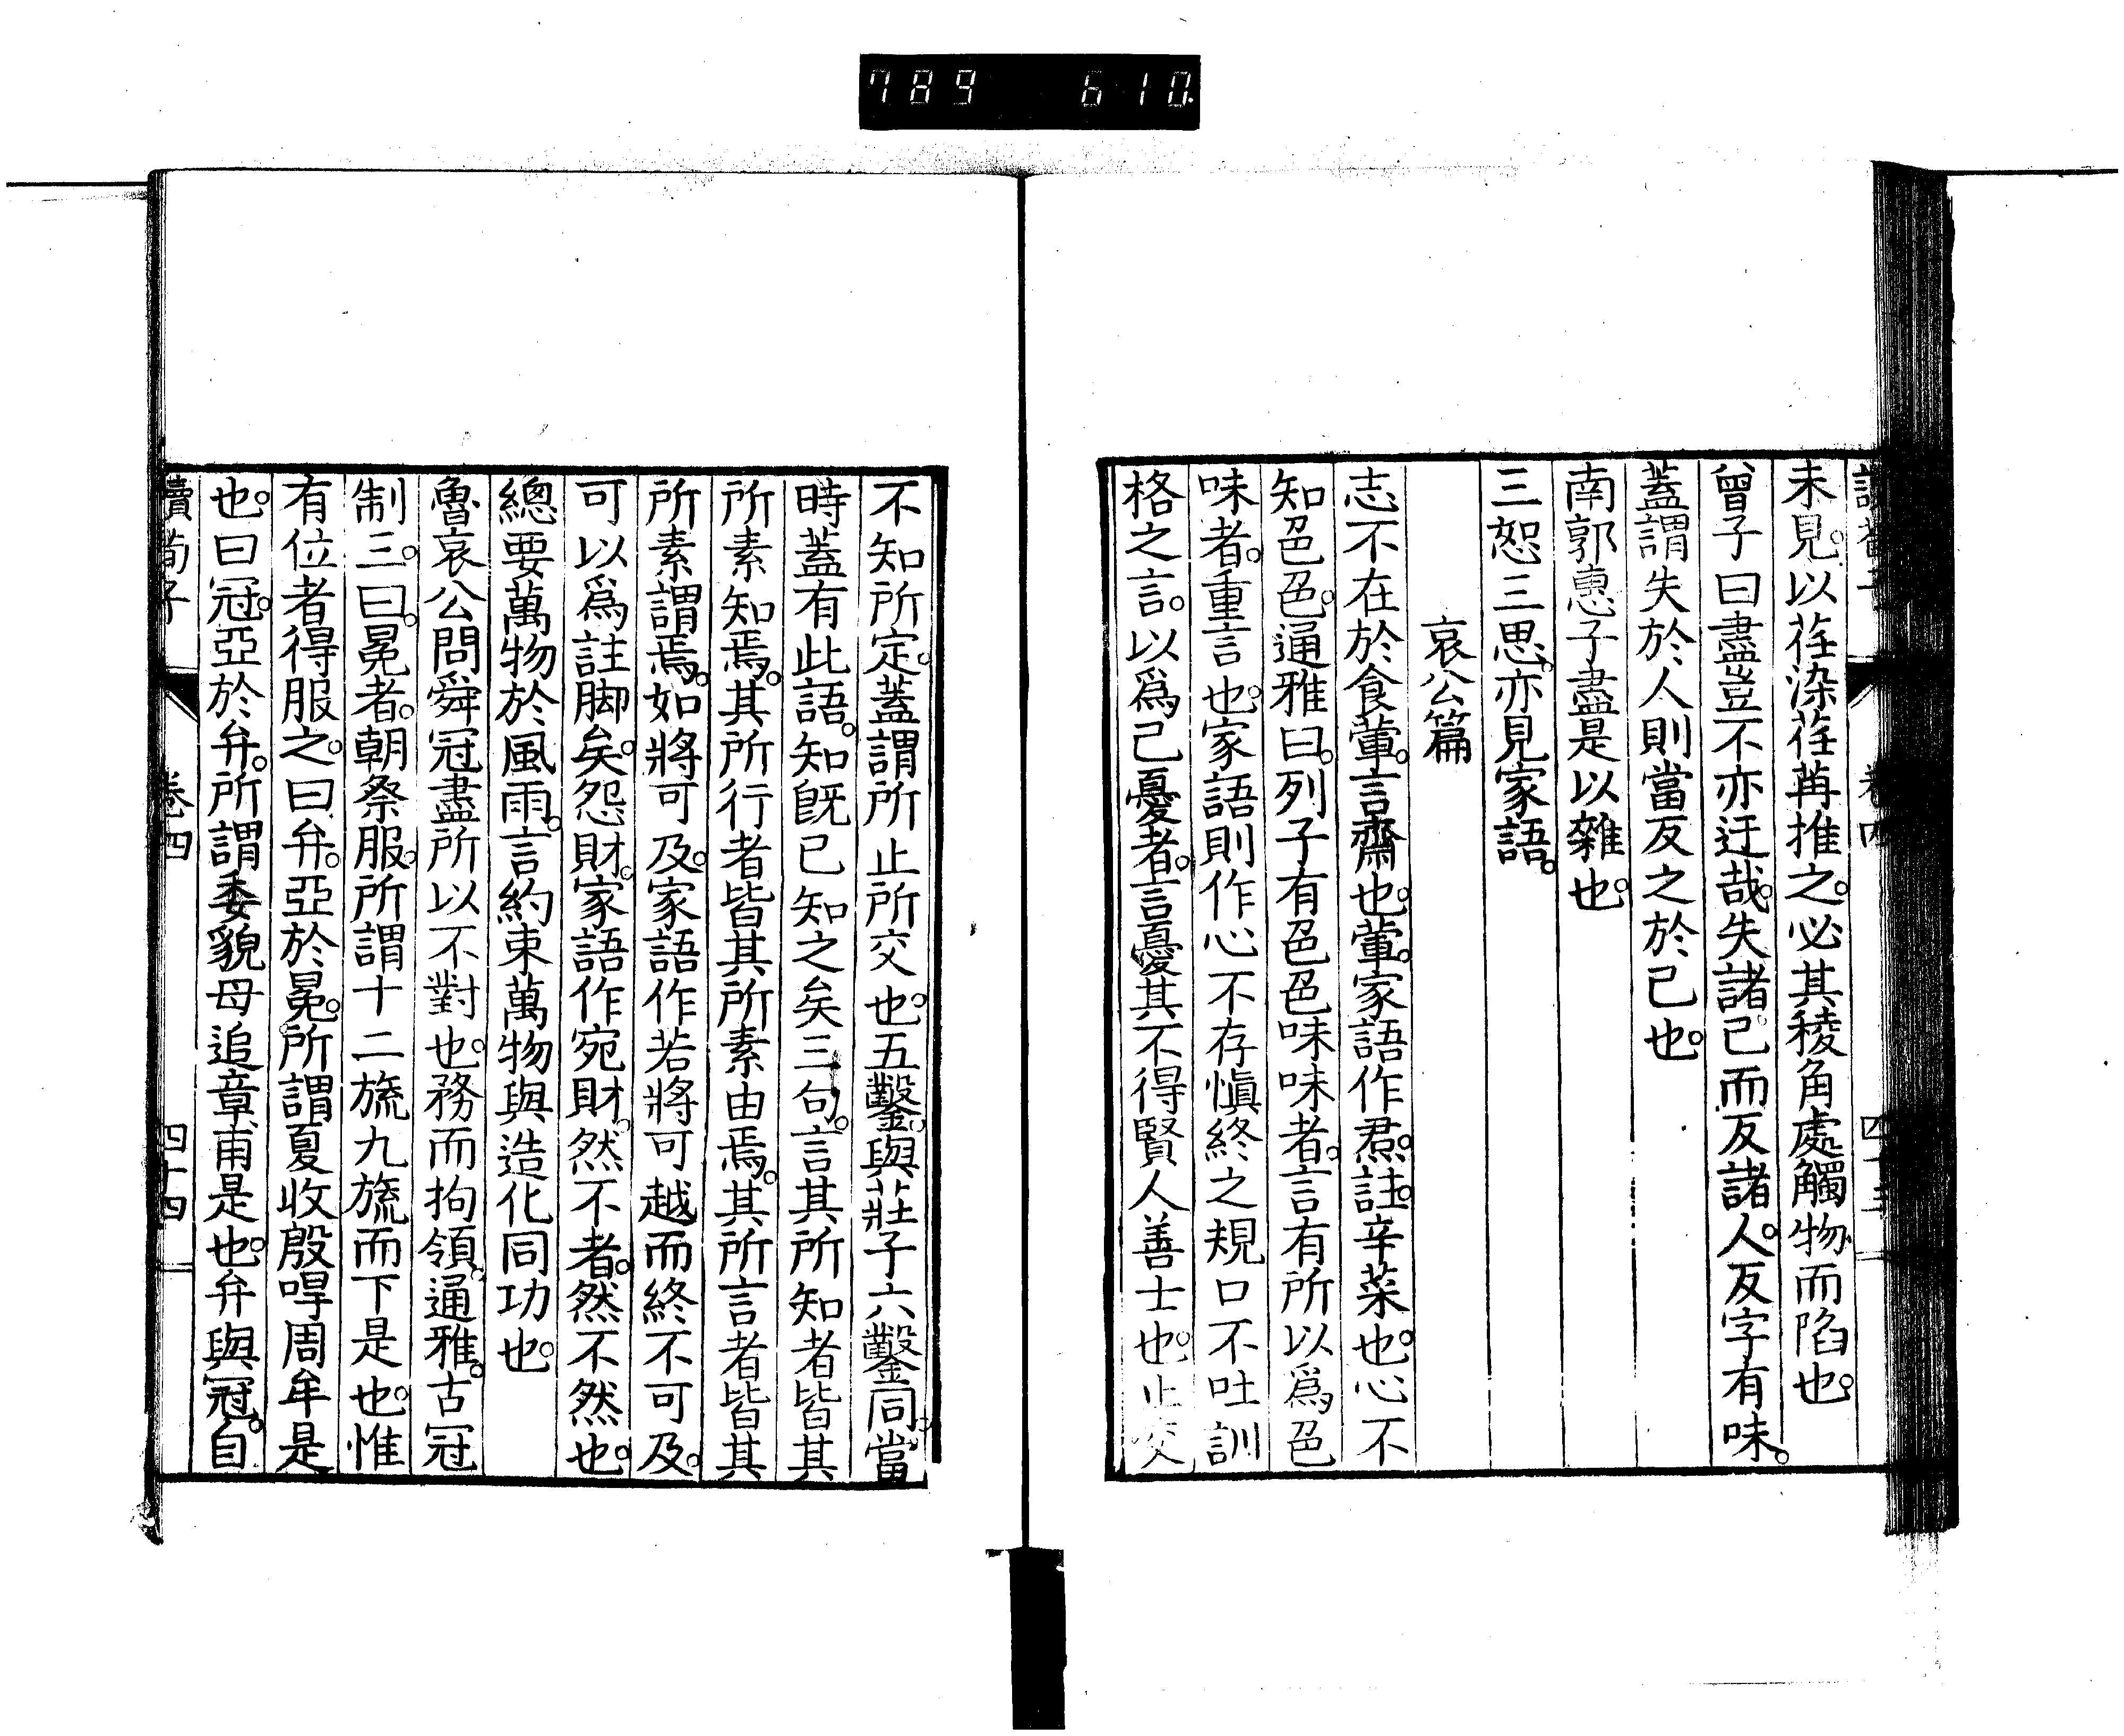 789 610
未見。以荏染荏苒推之。必其稜角處觸物而陷也。
曾子曰盡豈不亦迂哉。失諸己而反諸人。反字有味。
蓋謂失於人則當反之於己也。
南郭惠子盡是以雜也。
三恕三思。亦見家語。
哀公篇
志不在於食葷。言齋也。葷。家語作焄。註。辛菜也。心不
知色色。通雅曰。列子有色色味味者。言有所以爲色
味者。重言也。家語則作心不存愼終之規口不吐訓
格之言。以爲己憂者。言憂其不得賢人善士也。止交
不知所定。蓋謂所止所交也。五鑿。與莊子六鑿同。當
時蓋有此語。知既已知之矣三句。言其所知者皆其
所素知焉。其所行者皆其所素由焉。其所言者皆其
所素謂焉。如將可及。家語作若將可越而終不可及。
可以爲註脚矣。怨財。家語作宛財。然不者。然不然也。
總要萬物於風雨。言約束萬物與造化同功也。
魯哀公問舜冠盡所以不對也。務而拘領。通雅。古冠
制三。曰。冕者。朝祭服。所謂十二旒九旒而下是也。惟
有位者得服之。曰弁。亞於冕。所謂夏收殷哻周牟是
也。曰冠。亞於弁。所謂委貌母追章甫是也。弁與冠。自
讀荀子 卷四 四十四